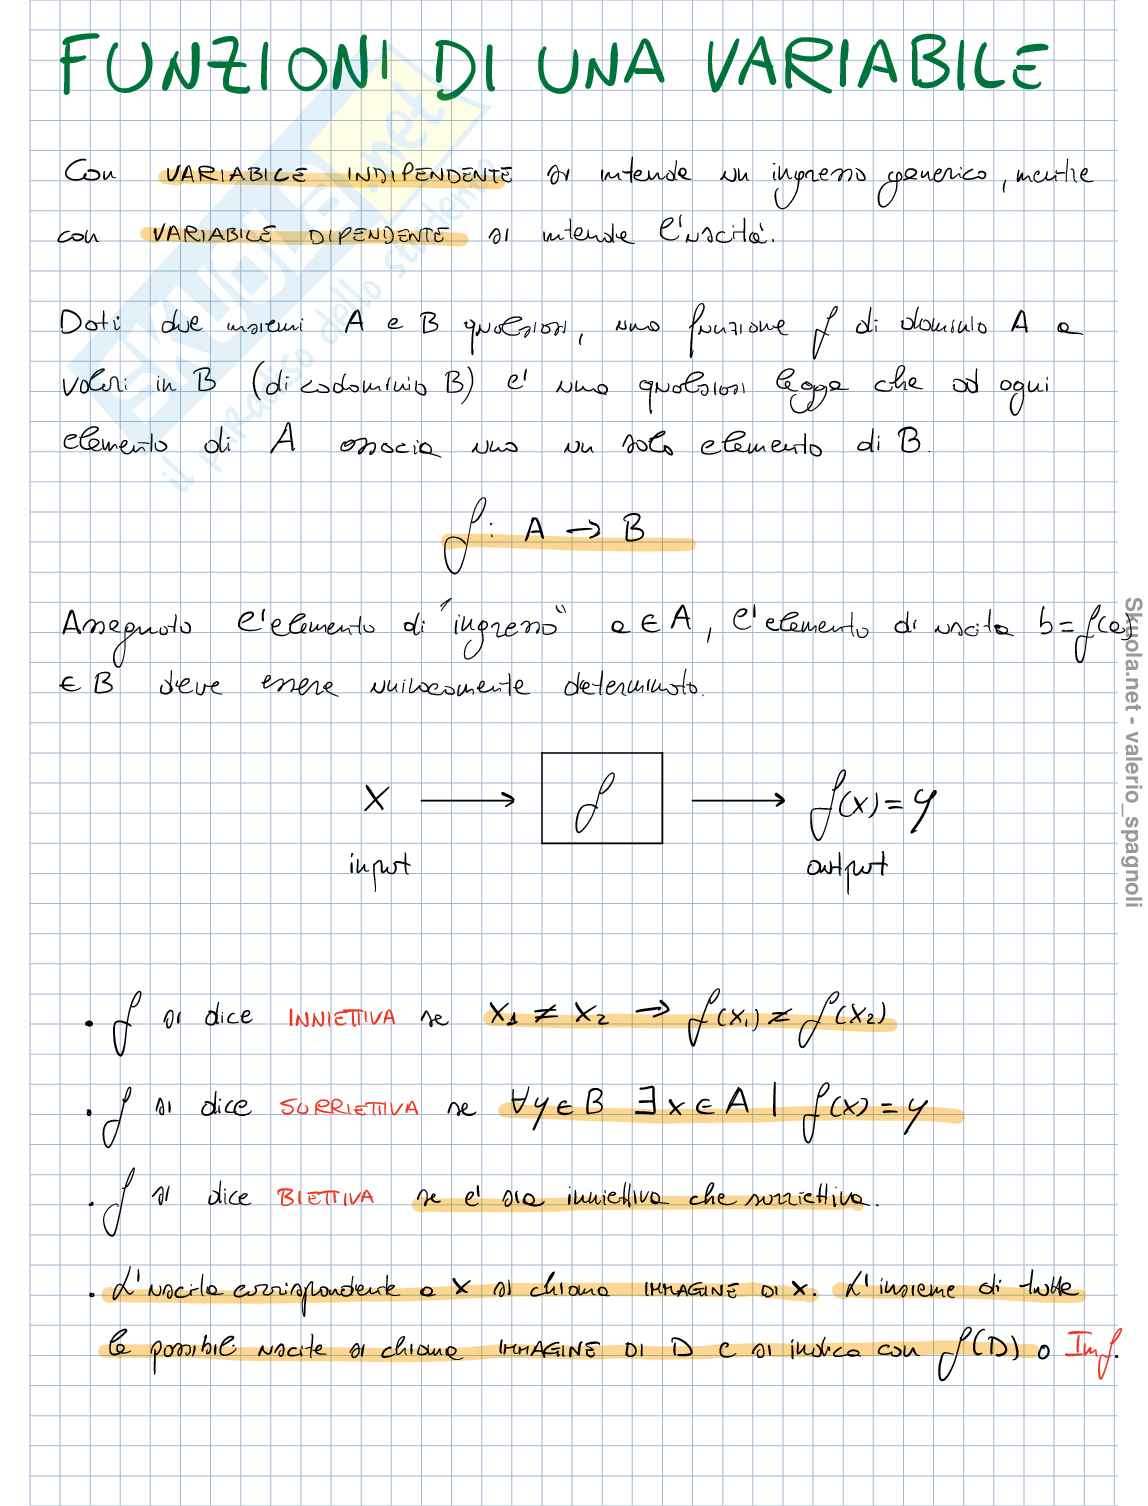 FUNZIONI DI UNA VARIABILE
Con VARIABILE INDIPENDENTE si intende un ingresso generico, mentre
con VARIABILE DIPENDENTE si intende l'uscita.
Dati due insiemi A e B qualsiasi, una funzione f di dominio A a
valori in B (di codominio B) e' una qualsiasi legge che ad ogni
elemento di A associa uno un solo elemento di B.
f: A → B
Assegnato l'elemento di "ingresso" a ∈ A, l'elemento di uscita b = f(a)
∈ B deve essere univocamente determinato.
x → f → f(x) = y
input output
. f si dice INNIETTIVA se x1 ≠ x2 → f(x1) ≠ f(x2)
. f si dice SURRIETTIVA se ∀y ∈ B ∃ x ∈ A | f(x) = y
. f si dice BIETTIVA se e' sia inniettiva che surriettiva.
. L'uscita corrispondente a x si chiama IMMAGINE DI X. L'insieme di tutte
le possibili uscite si chiama IMMAGINE DI D e si indica con f(D) o Imf.
Skuola.net - valerio_spagnoli
SKUOLA.net
il paradiso dello studente